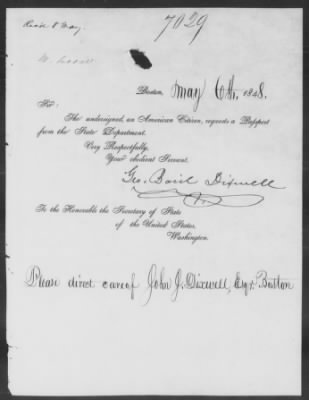 Recd 8 May.
7029
Boston, May 6th, 1848.
Sir:
The undersigned, an American Citizen, requests a Passport
from the State Department.
Very Respectfully,
Your obedient Servant,
Geo. Basil Dixwell
To the Honorable the Secretary of State
of the United States,
Washington.
Please direct care of John J. Dixwell, Esqr Boston